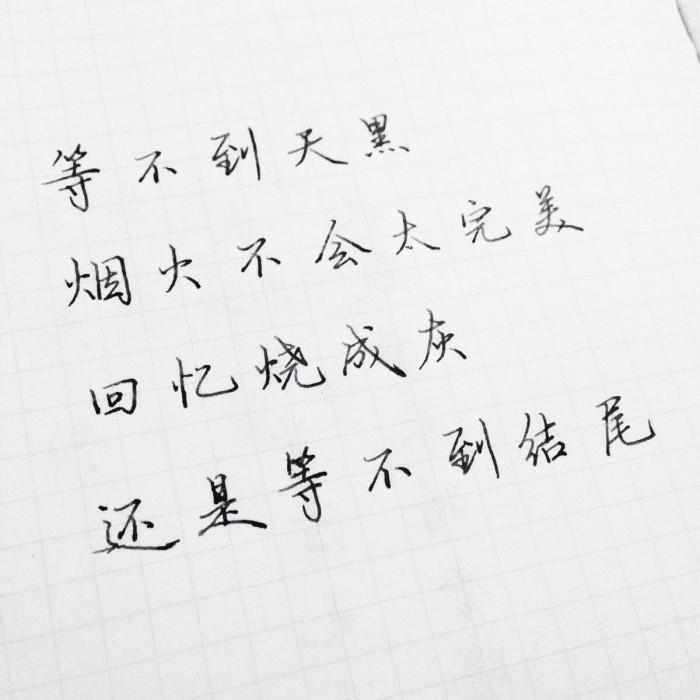 等不到天黑
烟火不会太完美
回忆烧成灰
还是等不到结尾